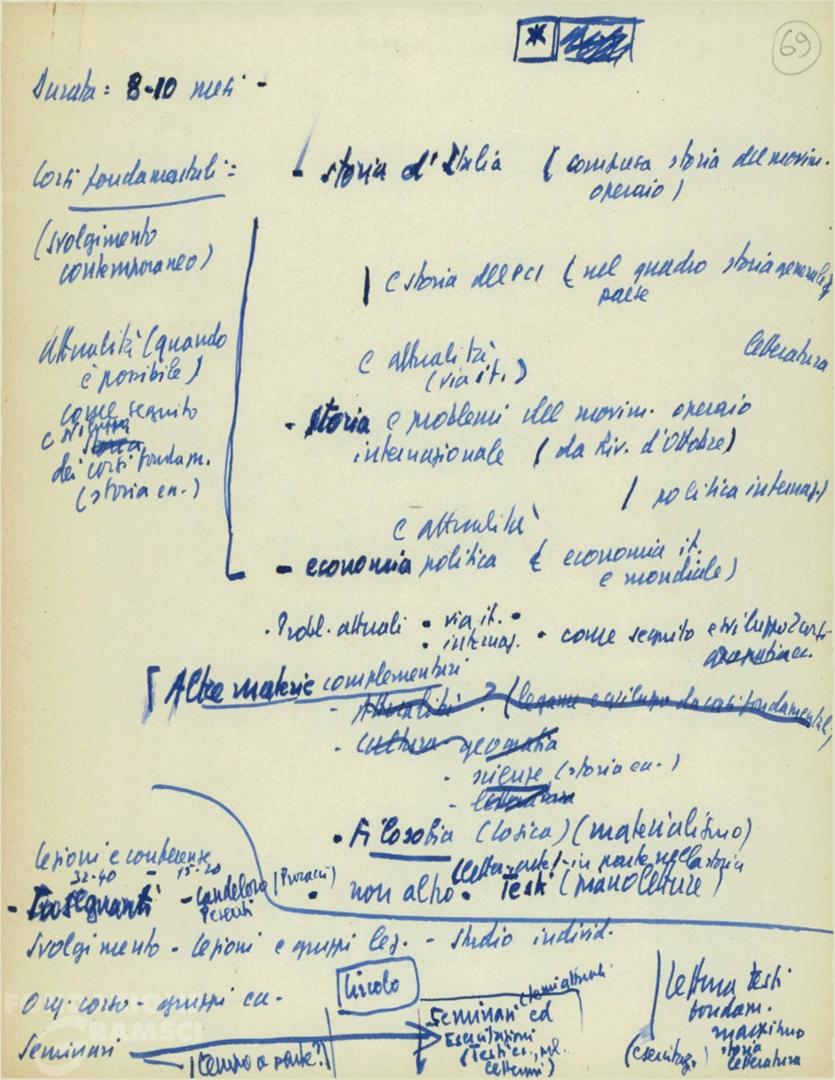 69
*
Durata = 8-10 mesi -
Corsi fondamentali =
- storia d'Italia (compresa storia del movim.
operaio)
(svolgimento
contemporaneo)
e storia del PCI (nel quadro storia generale
paese
attualità (quando
è possibile)
come seguito
e
dei corsi fondam.
(storia ecc.)
e attualità
(via it.)
letteratura
- storia e problemi del movim. operaio
internazionale (da Riv. d'Ottobre)
politica internaz)
e attualità
- economia politica (economia it.
e mondiale)
• Probl. attuali • via it. •
• internaz. • come seguito e sviluppo corsi
Altre materie complementari
- attualità . (legame e sviluppo da corsi fondamentali)
- cultura geografia
- scienze (storia ecc.)
- letteratura
• Filosofia (logica) (materialismo)
in parte nella storia
• non altro • Testi (mano letture)
lezioni e conferenze
32-40 - 15-20
- Insegnanti - Candeloro
Svolgimento - lezioni e gruppi leg. - studio individ.
Org. corso - gruppi ecc.
Circolo
Seminari
(tempo a parte?)
(temi attuali
Seminari ed
Esercitazioni
(Testi
Lettura testi
fondam.
marxismo
storia
letteratura
(esercitaz.)
FONDAZIONE
GRAMSCI